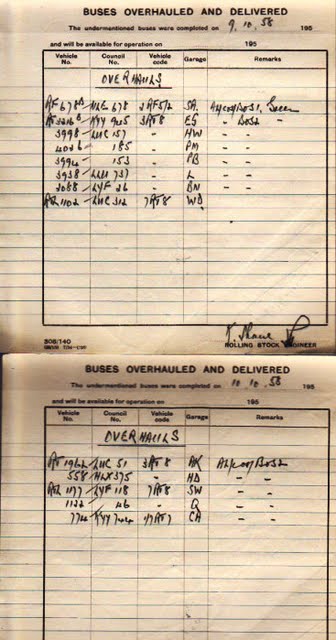 BUSES OVERHAULED AND DELIVERED
The undermentioned buses were completed on 9.10.58 195
and will be available for operation on 195
Vehicle No. Council No. Vehicle code Garage Remarks
OVERHAULS
RF 678 NLE 678 2RF5/2 SA. Green
KYY 945 3RT8 ES " "
3998 LUC 157 " HW " "
4026 185 " PM " "
3994 153 " PB " "
3938 737 " L " "
2088 LYF 26 " BN " "
1102 LUC 312 7RT8 WD " "
ROLLING STOCK ENGINEER
BUSES OVERHAULED AND DELIVERED
The undermentioned buses were completed on 10.10.58 195
and will be available for operation on 195
Vehicle No. Council No. Vehicle code Garage Remarks
OVERHAULS
LUC 51 3RT8 AK
558 HLX 375 " HD " "
1177 LYF 118 7RT8 SW " "
1122 46 " Q " "
KYY CA " "